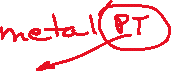 metal PT